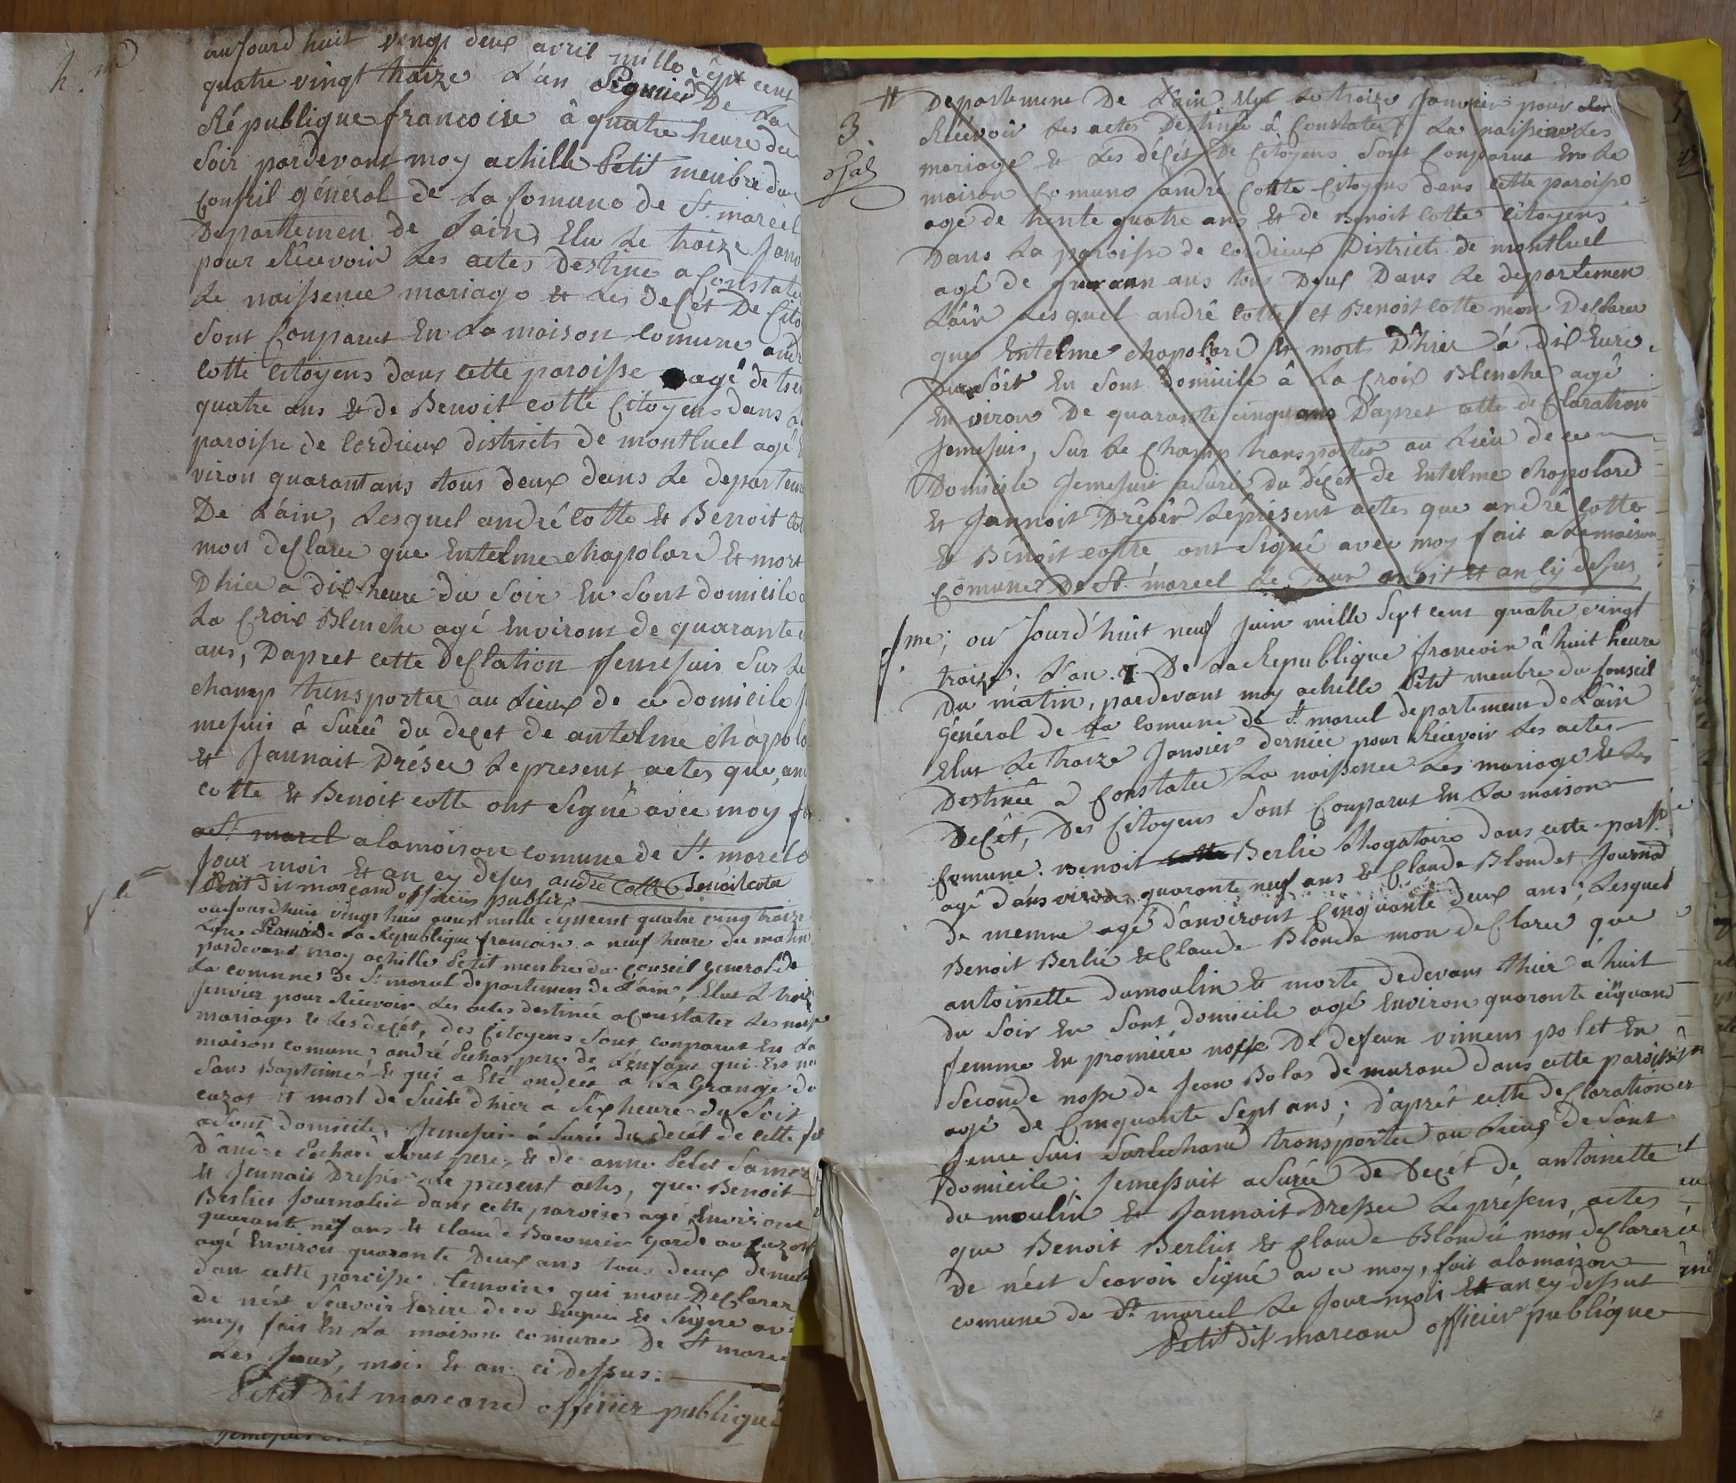 h. me
aujourdhuit vingt deux avril mille sept cent
quatre vingt traize L'an segonier De La
République françoise â quatre heure du
soir pardevant moy achille Petit menbre du
Conseil général de La Comune de St. marcel
Departemen de Lain Elu Le traize janv
pour Récevoir Les actes destines a Constate
Le naissence mariage et Les deçét De Cito
sont Conparut En La maison Comune and
cotte Citoyens dans cette paroisse agé de tren
quatre ans et de Benoit cotte Citoyens dans La
paroisse de Cordieux districts de montluel agé
viron quarantans tous deux dans Le departem
De L'ain, Lesquel andré cotte et Benoit cot
mon declaree que Entelme chapolard Et mort
Dhier a dix heure du soir En sont domicile
La Croix Blenche agé Environt de quarante
ans, Dapret cette declation Jemesuis sur Le
champ transportee au Lieux de ce domicile J
mesuis â Surée du deçet de antelme chapola
et Jannait Drésee Lepresent actes que and
cotte et Benoit cotte ont Segné avec moy f
a St marcel alamaison comune de St. marcel
Jour mois Et an cy desus andré Cotte Benoit cota
Petit dit marcand officier publie
aujourdhuis vingt huis avril mille sypt cent quatre vingt traize
Lan segond de La République francoise a neuf heure du matin
pardevant moy achille Petit menbre du Conseil general de
La comune de St. marcel departemen de L'ain, Elus L traize
Jenvier pour Récevoir Les actes destinée a Constater Les naisse
mariages et Les deçét, des Citoyens sont conparut En La
maison comune andré Pechar pere de L'enfant qui Es ne
sans Baptéme et qui a Eté ondéée a La Grange du
cuzot et mort de suite d'hier â six heure du soit
a sont domicile, Jemesuis â surée du deçét de cette f
D'andre Pechard sout pere, et de anne Pelet sa mere
et Jennais Dressér Le present actes, que Benoit
Berlier Journalier dans cette paroise agé Environt
quarante nef ans et claude Bacourie garde au cuzot
agé Environ quarante Deux ans tous deux demeu
dan cette paroisse temoins qui mon Declarer
de nést sçavoir Ecrire de ce Enquis et signe av
moy, fait En La maison comune De St marce
Les Jour, mois Et an ci dessus.
Petit Dit marcand officier publique
#
3.
Departemene De L'ain Elu Le traize Janvier pour
Récevoir Les actes Destinée â Constater La naissence Les
mariage et Les déçét De Citoyens sont Conparut En La
maison Comune andré cotte Citoyens dans cette paroisse
agé de trente quatre ans Et de Benoit cotte Citoyens
Dans La paroisse de Cordieux District de montluel
agé de quarann ans tous Deux Dans Le departemen
L'ain Lesquel andré cotte et Benoit cotte mon Declaree
que Entelme chapolard Et mort D'hier â dix Eure
Du soit En sont Domicile â La Croix Blenche agé
Environ De quarante cinquans D'apret cette declaration
Jemesuis, sur Le Champ transportee au Lieu de ce
Domicile Jemesuis asurée du deçét de Entelme chapolard
Et Jannoit Drésér Leprésent actes que andré cotte
Et Bénoit cotte ont signé avec moy fait a Lamaison
Comune De St. marcel Le Jour moit Et an Cy desus,
fme; ou Jourd'huit neuf Juin mille sept cent quatre vingt
traize. L'an. 2 De La Republique francoise â huit heure
Du matin, pardevant moy achille Petit menbre du Conseil
Général de La comune de St. marcel departement de L'ain
Elut Le traize Janvier derniée pour Récevoir Les actes
Destinée a Constatee La naissence Les mariage Et Les
Deçêt, Des Citoyens sont Conparut En La maison
Comune. Benoit cotte Berlie dans cette
agé d'anviron quaronte neuf ans et Claude Blondet Journal
de memme agé d'anviront Cinquante deux ans; Lesquel
Benoit Berlie et Claude Blonde mon declaree que
antoinette dumoulin Et morte dedevans thier â huit
du soir En sont domicile agé Environ quaronte
femme En promiére nosse De defeun vincens polet En
seconde nosse de Jean Bolas de murane dans cette paroisse
agé de Cinquante sept ans; d'aprêt cette declaration
Jeme suis surlechand transportee au Lieux de sont
domicile; Jemessuit asurée De Deçét de antoinette
du moulin Et Jannait Dressee Le présens, actes
que Benoit Berlies Et Claude Blondé mon declarer
de nést sçavoir Signé avec moy, fait alamaison
comune de St. marcel Le Jour mois Et an cy dessut
Petit dit marcand officier publique